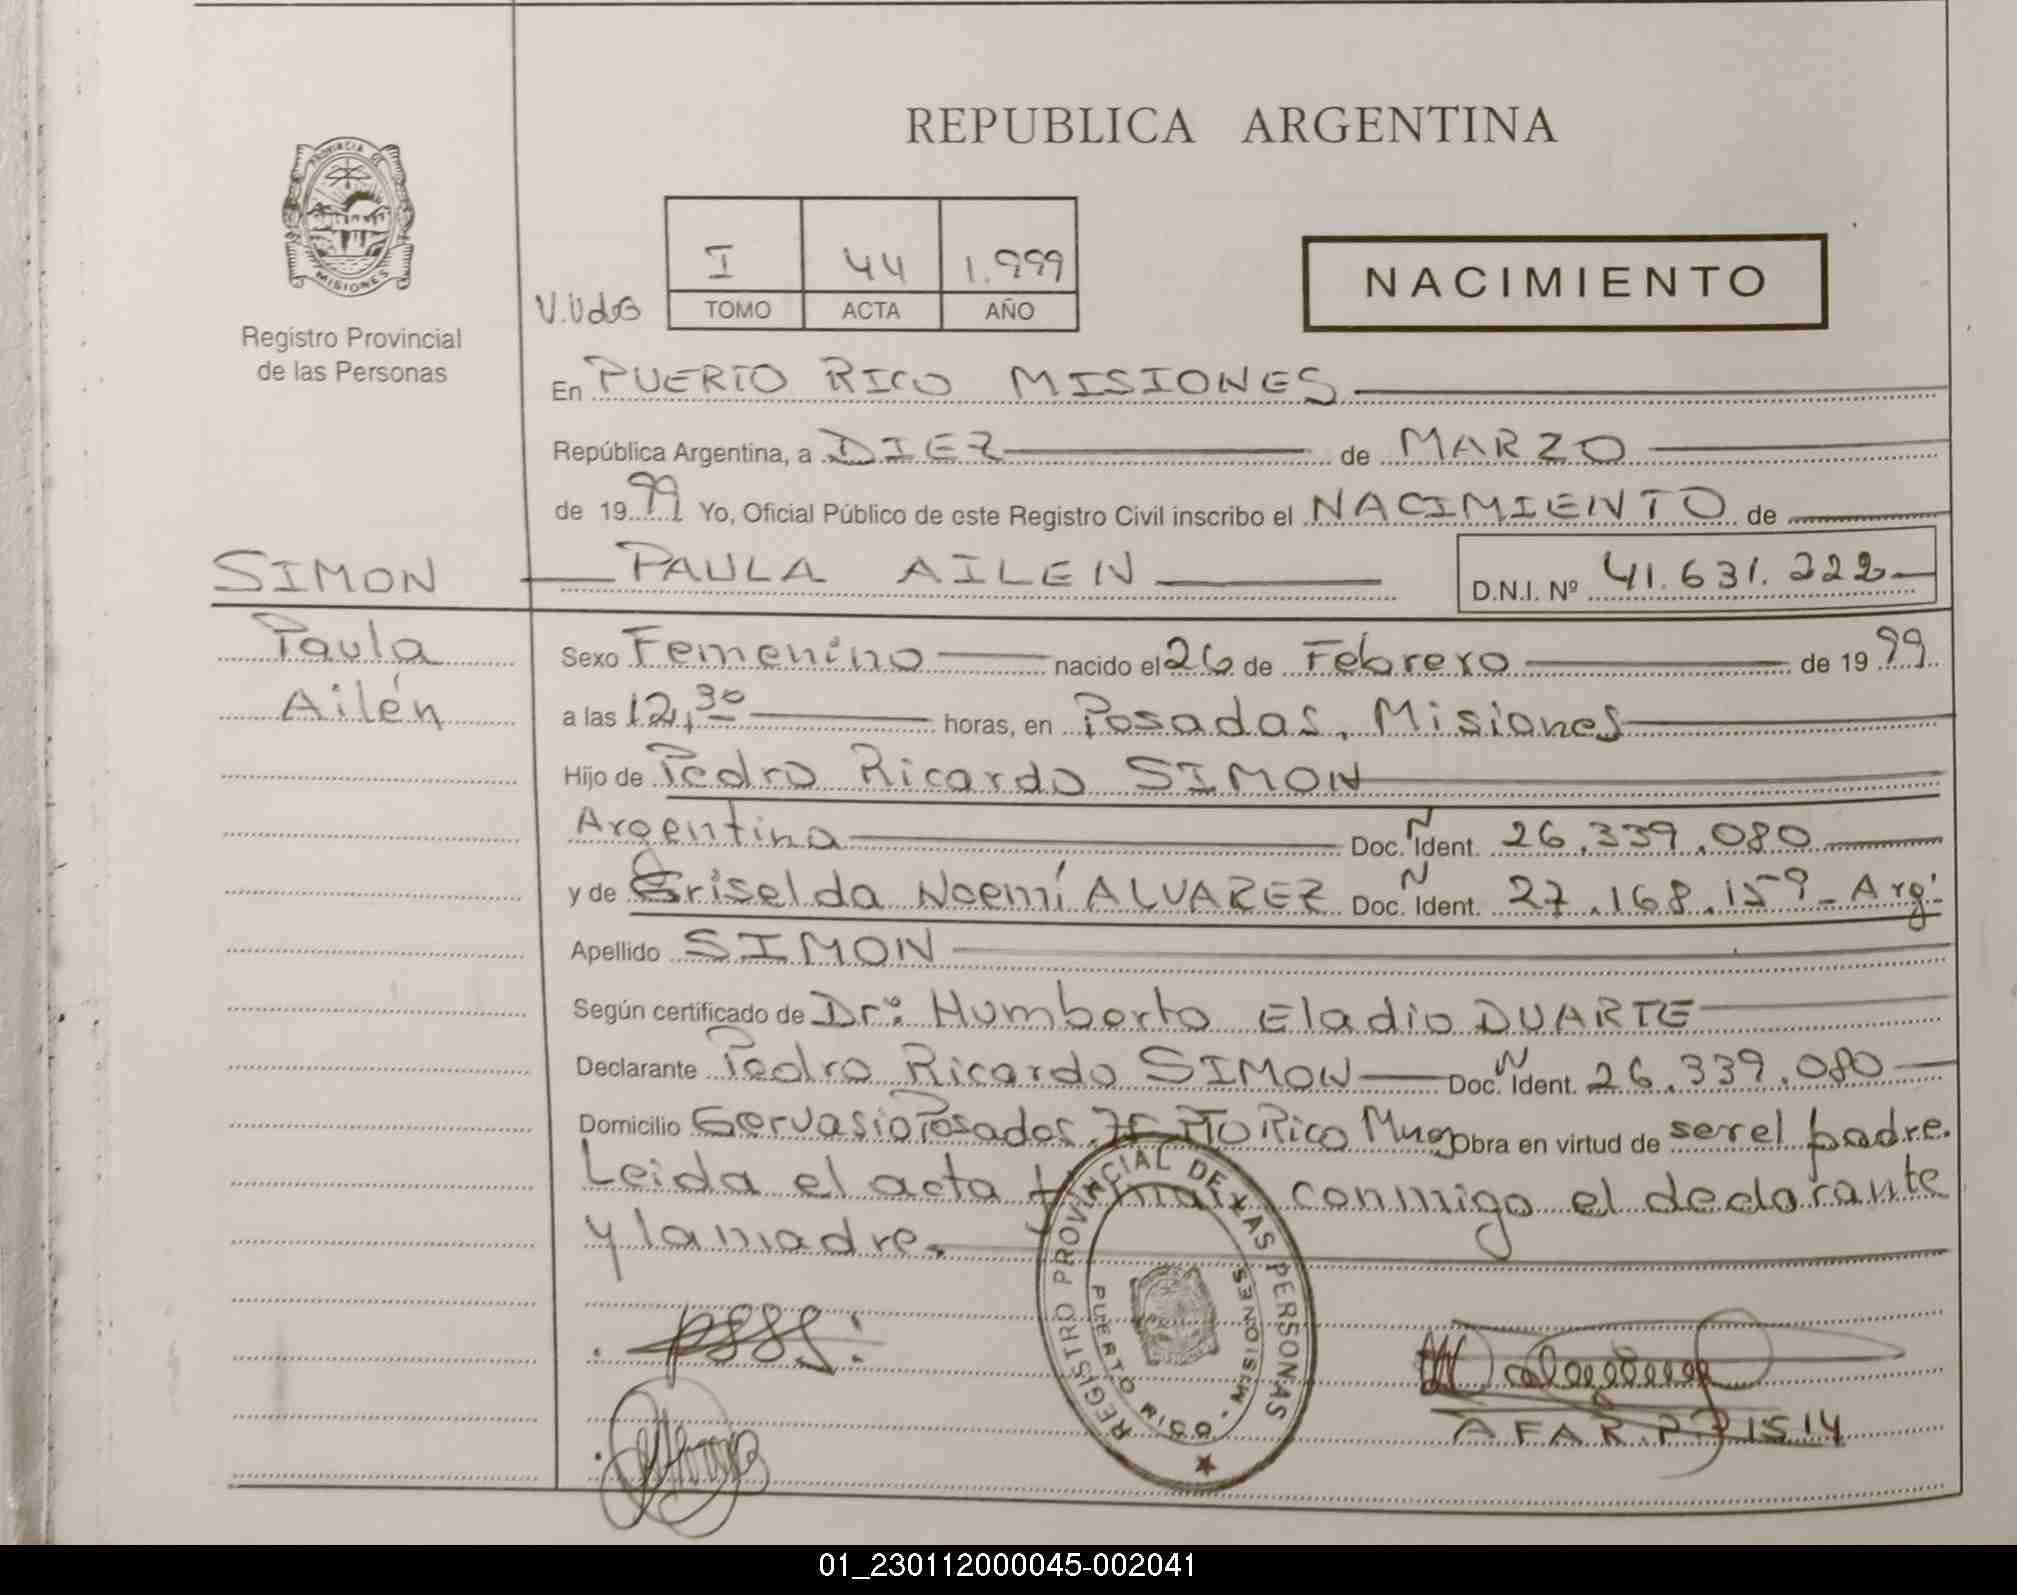 REPUBLICA ARGENTINA
PROVINCIA DE MISIONES
Registro Provincial
de las Personas
I 44 1.999
TOMO ACTA AÑO
NACIMIENTO
En PUERTO RICO MISIONES
República Argentina, a DIEZ de MARZO
de 1999 Yo, Oficial Público de este Registro Civil inscribo el NACIMIENTO de
SIMON PAULA AILEN D.N.I. Nº 41.631.222
Paula
Ailén
Sexo Femenino nacido el 26 de Febrero de 1999
a las 12,30 horas, en Posadas, Misiones
Hijo de Pedro Ricardo SIMON
Argentina Doc. N Ident. 26.339.080
y de Griselda Noemí ALVAREZ Doc. N Ident. 27.168.159 - Arg.
Apellido SIMON
Según certificado de Dr: Humberto Eladio DUARTE
Declarante Pedro Ricardo SIMON Doc. N Ident. 26.339.080
Domicilio Gervasio Posadas Pto Rico Obra en virtud de ser el padre.
Leida el acta conmigo el declarante
y la madre.
REGISTRO PROVINCIAL DE LAS PERSONAS
PUERTO RICO - MISIONES
01_230112000045-002041